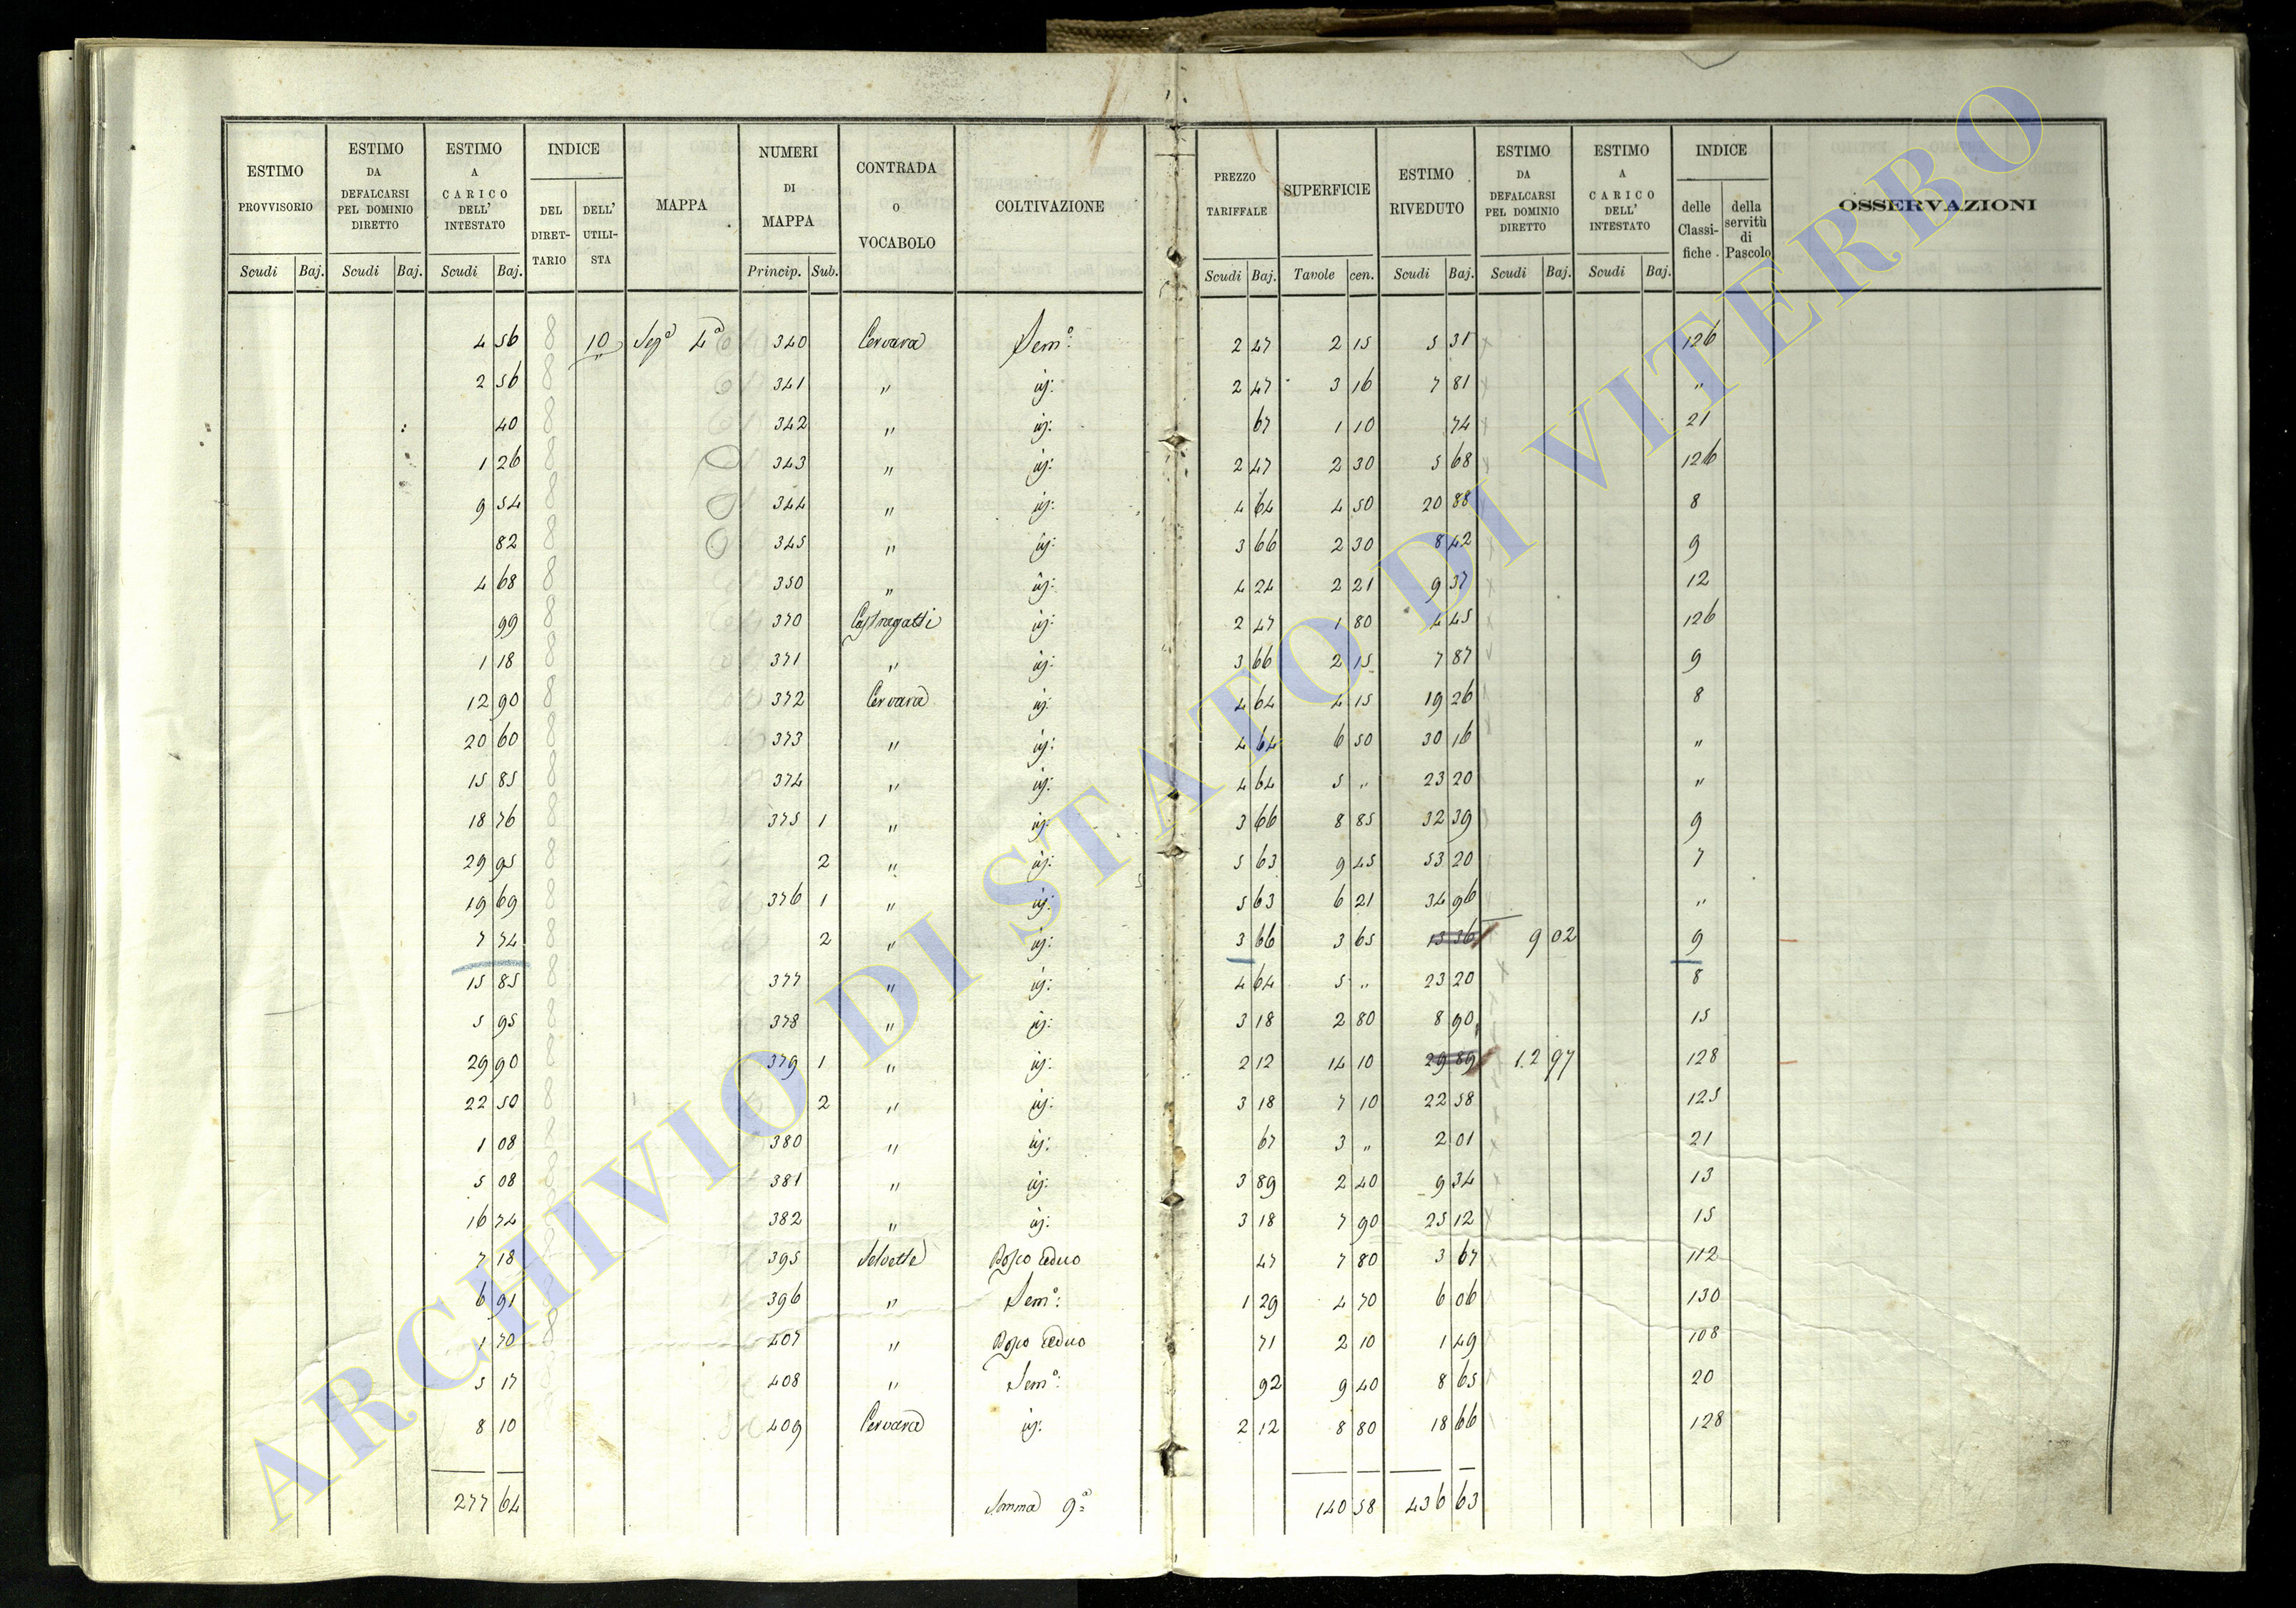 ESTIMO PROVVISORIO | ESTIMO DA DEFALCARSI PEL DOMINIO DIRETTO | ESTIMO A CARICO DELL' INTESTATO | INDICE | MAPPA | NUMERI DI MAPPA | CONTRADA o VOCABOLO | COLTIVAZIONE | PREZZO TARIFFALE | SUPERFICIE | ESTIMO RIVEDUTO | ESTIMO DA DEFALCARSI PEL DOMINIO DIRETTO | ESTIMO A CARICO DELL' INTESTATO | INDICE | OSSERVAZIONI
DEL DIRET-TARIO | DELL' UTILI-STA | delle Classi-fiche. | della servitù di Pascolo
Scudi | Baj. | Scudi | Baj. | Scudi | Baj. | Princip. | Sub. | Scudi | Baj. | Tavole | cen. | Scudi | Baj. | Scudi | Baj. | Scudi | Baj.
4 56 | 8 | 10 | Segª 4ª | 340 | Cervara | Semº: | 2 47 | 2 15 | 5 31 | 126
2 56 | 8 | " | 341 | " | id: | 2 47 | 3 16 | 7 81 | "
40 | 8 | 342 | " | id: | 67 | 1 10 | 74 | 21
1 26 | 8 | 343 | " | id: | 2 47 | 2 30 | 5 68 | 126
9 54 | 8 | 344 | " | id: | 4 64 | 4 50 | 20 88 | 8
82 | 8 | 345 | " | id: | 3 66 | 2 30 | 8 42 | 9
4 68 | 8 | 350 | " | id: | 4 24 | 2 21 | 9 37 | 12
99 | 8 | 370 | Castragatti | id: | 2 47 | 1 80 | 4 45 | 126
1 18 | 8 | 371 | " | id: | 3 66 | 2 15 | 7 87 | 9
12 90 | 8 | 372 | Cervara | id: | 4 64 | 4 15 | 19 26 | 8
20 60 | 8 | 373 | " | id: | 4 64 | 6 50 | 30 16 | "
15 85 | 8 | 374 | " | id: | 4 64 | 5 " | 23 20 | "
18 76 | 8 | 375 | 1 | " | id: | 3 66 | 8 85 | 32 39 | 9
29 95 | 8 | 2 | " | id: | 5 63 | 9 45 | 53 20 | 7
19 69 | 8 | 376 | 1 | " | id: | 5 63 | 6 21 | 34 96 | "
7 74 | 8 | 2 | " | id: | 3 66 | 3 65 | 13 36 | 9 02 | 9
15 85 | 8 | 377 | " | id: | 4 64 | 5 " | 23 20 | 8
5 95 | 8 | 378 | " | id: | 3 18 | 2 80 | 8 90 | 15
29 90 | 8 | 379 | 1 | " | id: | 2 12 | 14 10 | 29 89 | 12 97 | 128
22 50 | 8 | 2 | " | id: | 3 18 | 7 10 | 22 58 | 125
1 08 | 8 | 380 | " | id: | 67 | 3 " | 2 01 | 21
5 08 | 8 | 381 | " | id: | 3 89 | 2 40 | 9 34 | 13
16 74 | 8 | 382 | " | id: | 3 18 | 7 90 | 25 12 | 15
7 18 | 8 | 395 | Selvette | Bosco ceduo | 47 | 7 80 | 3 67 | 112
6 91 | 8 | 396 | " | Semº: | 1 29 | 4 70 | 6 06 | 130
1 70 | 8 | 407 | " | Bosco ceduo | 71 | 2 10 | 1 49 | 108
5 17 | 8 | 408 | " | Semº: | 92 | 9 40 | 8 65 | 20
8 10 | 409 | Cervara | id: | 2 12 | 8 80 | 18 66 | 128
277 64 | Somma 9ª | 140 58 | 436 63
ARCHIVIO DI STATO DI VITERBO